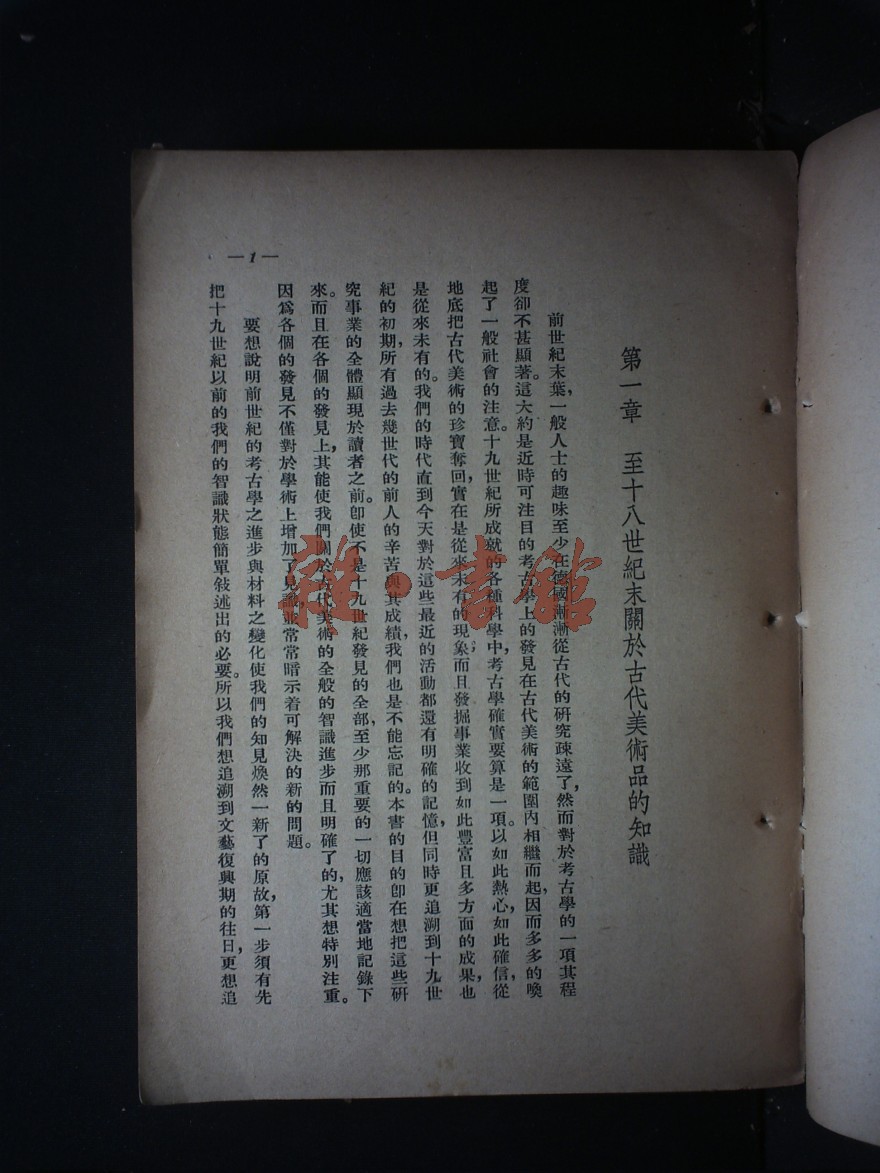 第一章　至十八世紀末關於古代美術品的知識
前世紀末葉，一般人士的趣味至少在德國漸漸從古代的研究疎遠了，然而對於考古學的一項其程
度卻不甚顯著。這大約是近時可注目的考古學上的發見在古代美術的範圍內相繼而起，因而多多的喚
起了一般社會的注意。十九世紀所成就的各種科學中，考古學確實要算是一項。以如此熱心，如此確信，從
地底把古代美術的珍寶奪回，實在是從來未有的現象；而且發掘事業收到如此豐富且多方面的成果，也
是從來未有的。我們的時代直到今天對於這些最近的活動都還有明確的記憶，但同時更追溯到十九世
紀的初期，所有過去幾世代的前人的辛苦與其成績，我們也是不能忘記的。本書的目的卽在想把這些硏
究事業的全體顯現於讀者之前。卽使不是十九世紀發見的全部，至少那重要的一切應該適當地記錄下
來。而且在各個的發見上，其能使我們關於古代美術的全般的智識進步而且明確了的，尤其想特別注重。
因爲各個的發見不僅對於學術上增加了見識，並常常暗示着可解決的新的問題。
要想說明前世紀的考古學之進步與材料之變化使我們的知見煥然一新了的原故，第一步須有先
把十九世紀以前的我們的智識狀態簡單敍述出的必要。所以我們想追溯到文藝復興期的往日，更想追
—1—
雜·書館